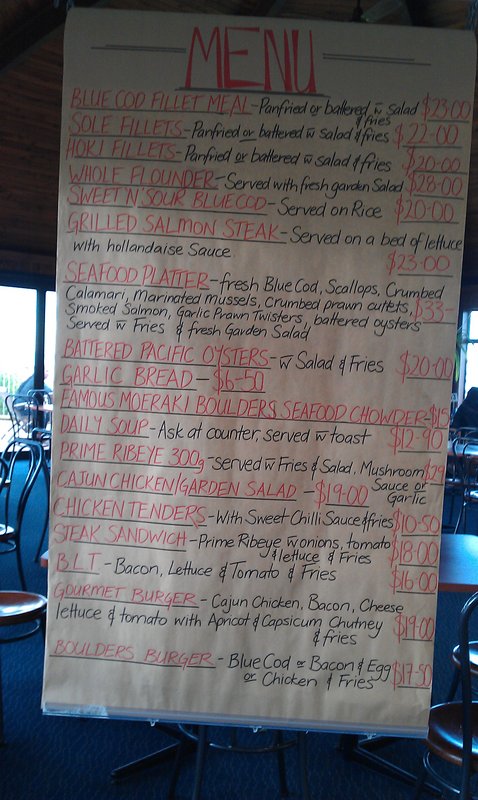 MENU
BLUE COD FILLET MEAL - Panfried or battered w̄ Salad $23-00
& fries
SOLE FILLETS - Panfried or battered w̄ salad & fries $22-00
HOKI FILLETS - Panfried or battered w̄ salad & fries $20-00
WHOLE FLOUNDER - Served with fresh garden Salad $28-00
SWEET'N'SOUR BLUECOD - Served on Rice $20-00
GRILLED SALMON STEAK - Served on a bed of lettuce
with hollandaise Sauce. $23-00
SEAFOOD PLATTER - fresh Blue Cod, Scallops, Crumbed
Calamari, Marinated mussels, Crumbed prawn cutlets, $33-
Smoked Salmon, Garlic Prawn Twisters, battered oysters
Served w̄ Fries & fresh Garden Salad
BATTERED PACIFIC OYSTERS - w̄ Salad & Fries $20-00
GARLIC BREAD - $6-50
FAMOUS MOERAKI BOULDERS SEAFOOD CHOWDER - $15
DAILY SOUP - Ask at counter, served w̄ toast $12-90
PRIME RIBEYE 300g - served w̄ Fries & Salad, Mushroom $29
Sauce or
CAJUN CHICKEN/GARDEN SALAD - $19-00 Garlic
CHICKEN TENDERS - With Sweet Chilli Sauce & fries $10-50
STEAK SANDWICH - Prime Ribeye w̄ onions, tomato
& lettuce & Fries $18-00
B.L.T - Bacon, Lettuce & Tomato & Fries $16-00
GOURMET BURGER - Cajun Chicken, Bacon, Cheese
lettuce & tomato with Apricot & Capsicum Chutney $19-00
& fries
BOULDERS BURGER - Blue Cod or Bacon & Egg $17-50
or Chicken & Fries